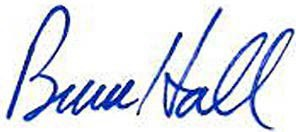 Bruce Hall